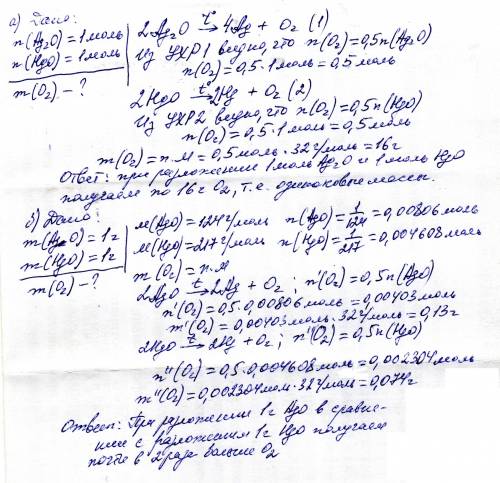 а) Дано:
n(Ag₂O) = 1 моль
n(HgO) = 1 моль
m(O₂) - ?
2Ag₂O →t° 4Ag + O₂ (1)
Из УХР1 видно, что n(O₂) = 0,5n(Ag₂O)
n(O₂) = 0,5 · 1 моль = 0,5 моль
2HgO →t° 2Hg + O₂ (2)
Из УХР2 видно, что n(O₂) = 0,5n(HgO)
n(O₂) = 0,5 · 1 моль = 0,5 моль
m(O₂) = n · M = 0,5 моль · 32 г/моль = 16 г
Ответ: при разложении 1 моль Ag₂O и 1 моль HgO
получаем по 16 г O₂, т.е. одинаковые массы.
б) Дано:
m(AgO) = 1 г
m(HgO) = 1 г
m(O₂) - ?
M(AgO) = 124 г/моль n(AgO) = 1/124 = 0,00806 моль
M(HgO) = 217 г/моль n(HgO) = 1/217 = 0,004608 моль
m(O₂) = n · M
2AgO →t 2Ag + O₂ ; n'(O₂) = 0,5n(AgO)
n'(O₂) = 0,5 · 0,00806 моль = 0,00403 моль
m'(O₂) = 0,00403 моль · 32 г/моль = 0,13 г
2HgO →t 2Hg + O₂ ; n''(O₂) = 0,5n(HgO)
n''(O₂) = 0,5 · 0,004608 моль = 0,002304 моль
m''(O₂) = 0,002304 моль · 32 г/моль = 0,074 г
Ответ: При разложении 1 г AgO в сравне-
нии с разложением 1 г HgO получаем
почти в 2 раза больше O₂